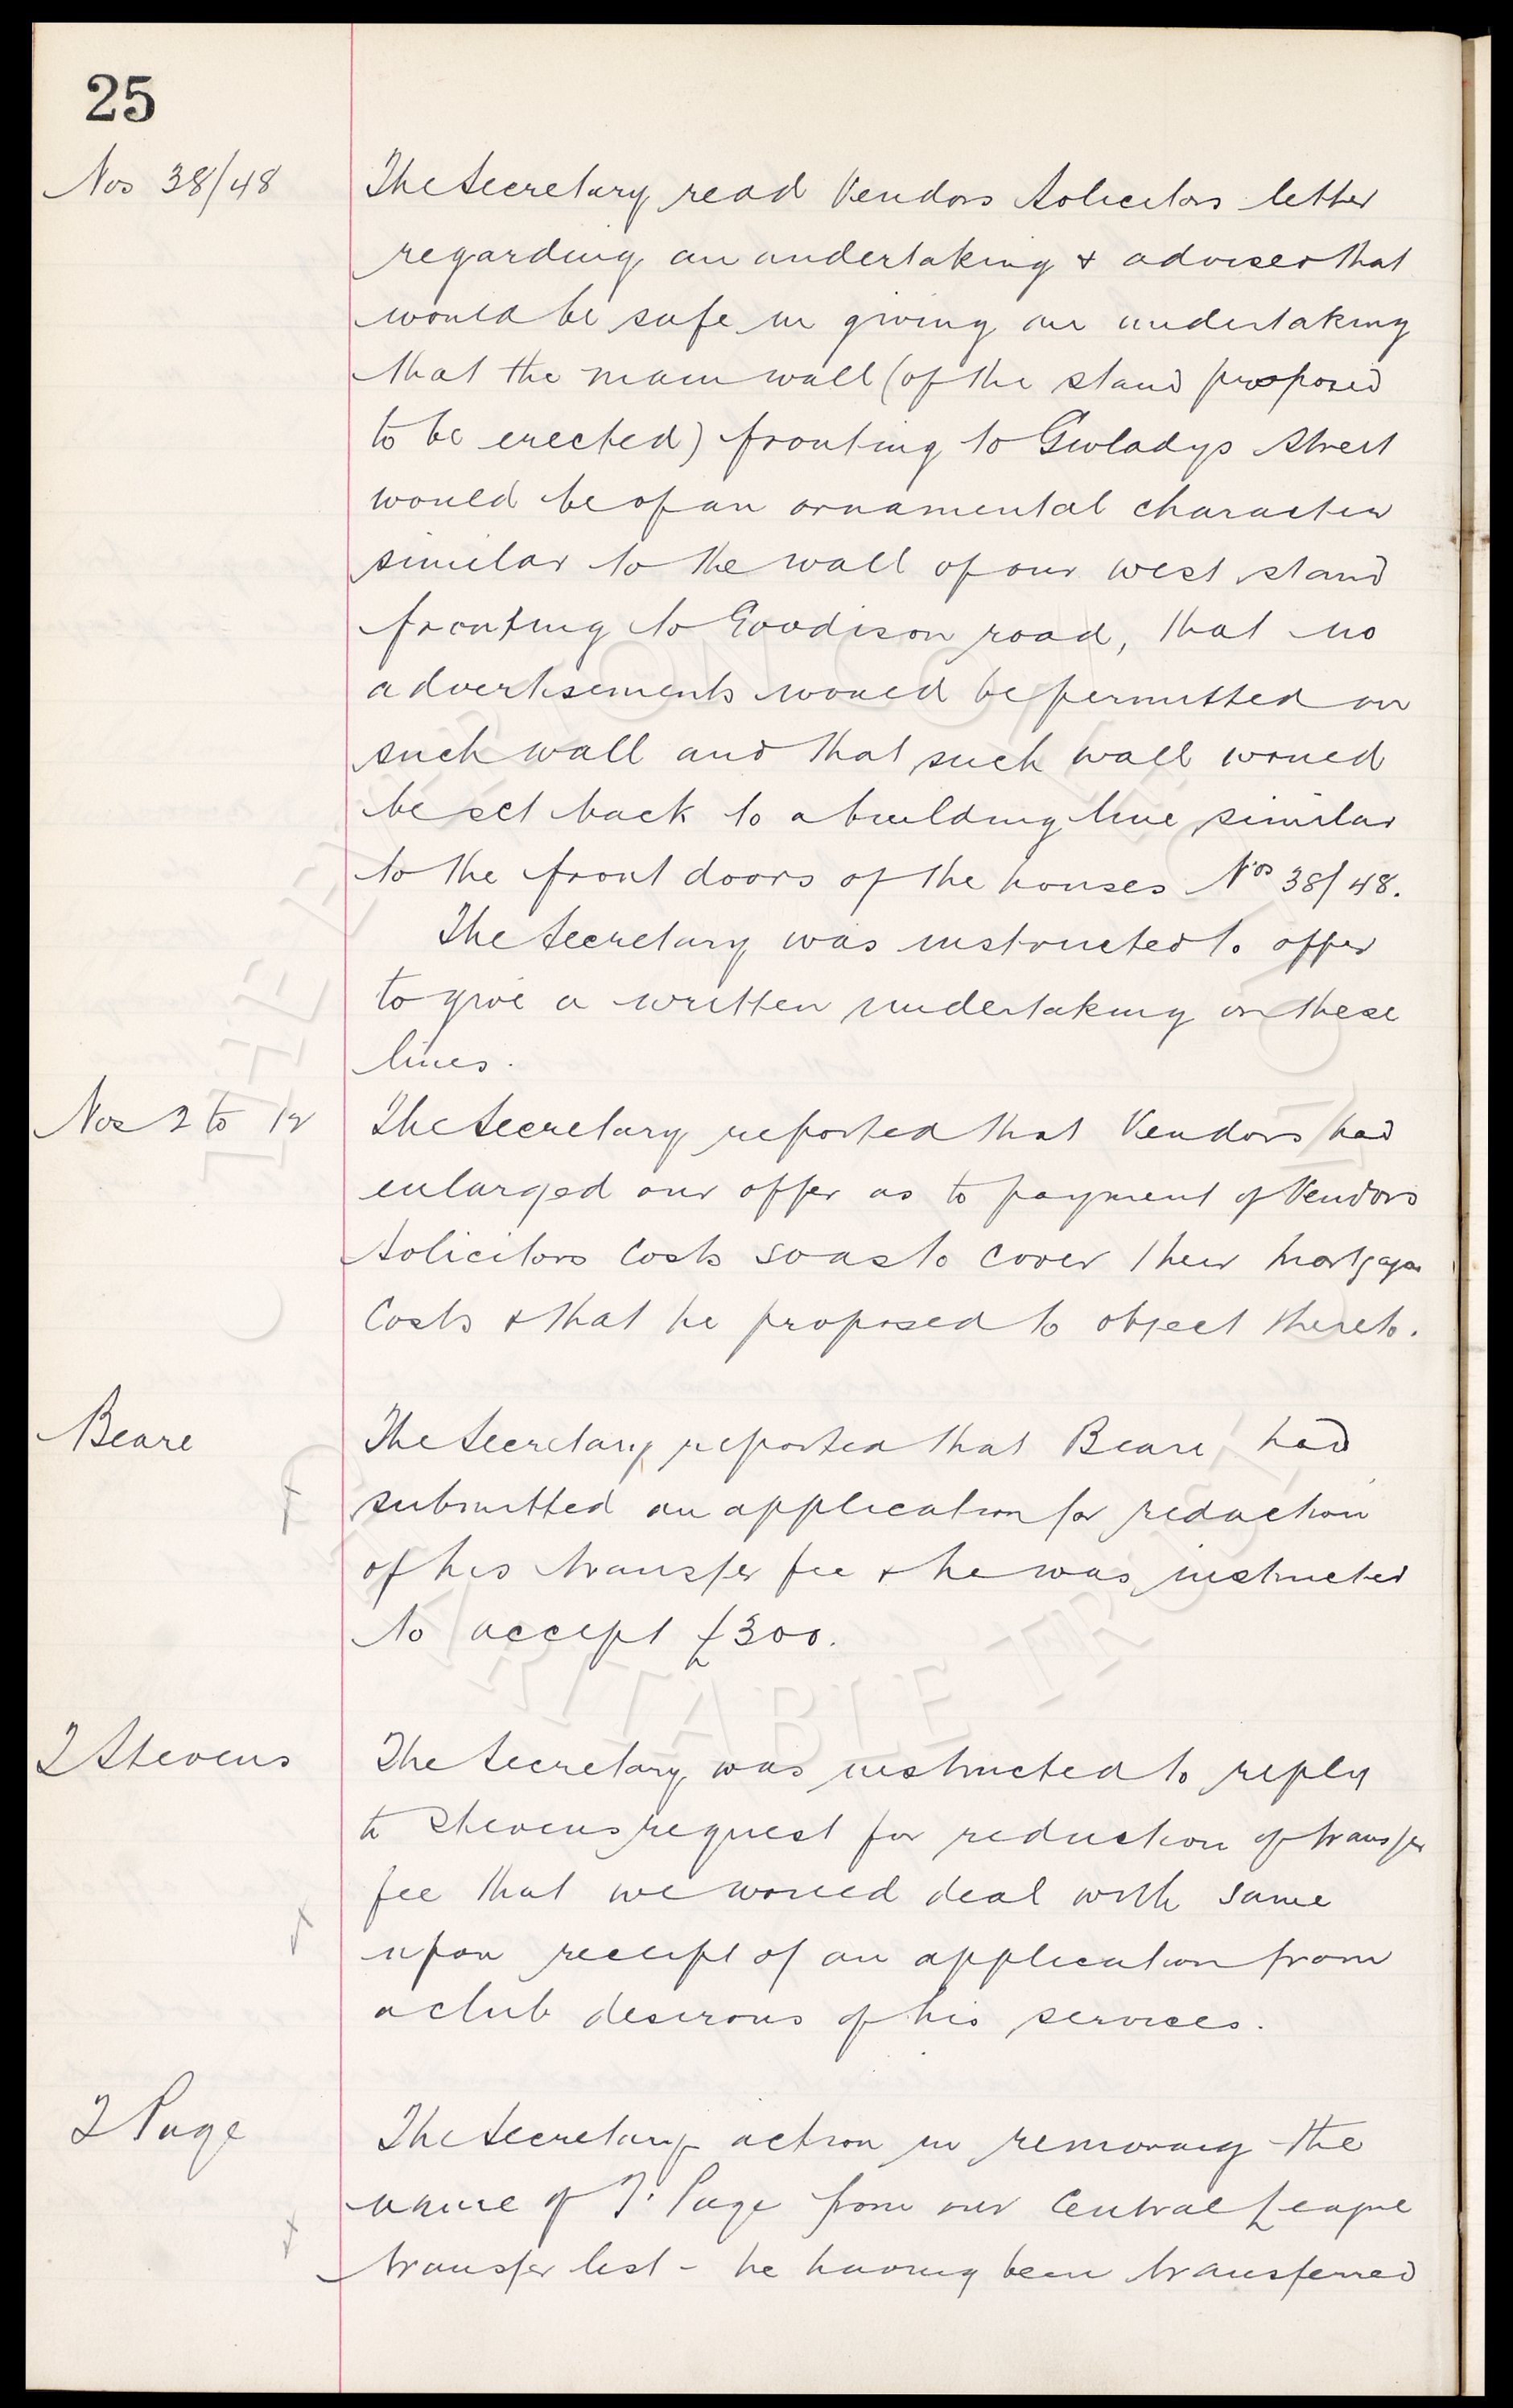 25
Nos 38/48
The Secretary read Vendors Solicitors letter
regarding an undertaking & advised that
would be safe in giving an undertaking
that the main wall (of the stand proposed
to be erected) fronting to Gwladys Street
would be of an ornamental character
similar to the wall of our west stand
fronting to Goodison road, that no
advertisements would be permitted on
such wall and that such wall would
be set back to a building line similar
to the front doors of the houses Nos 38/48.
The Secretary was instructed to offer
to give a written undertaking on these
lines.
Nos 2 to 12
The Secretary reported that Vendors had
enlarged our offer as to payment of Vendors
Solicitors Costs so as to cover their mortgage
Costs & that he proposed to object thereto.
Beare
The Secretary reported that Beare had
submitted an application for reduction
of his transfer fee & he was instructed
to accept £300.
J Stevens
The Secretary was instructed to reply
to Stevens request for reduction of transfer
fee that we would deal with same
upon receipt of an application from
a club desirous of his services.
J Page
The Secretary action in removing the
name of J. Page from our Central League
transfer list - he having been transferred